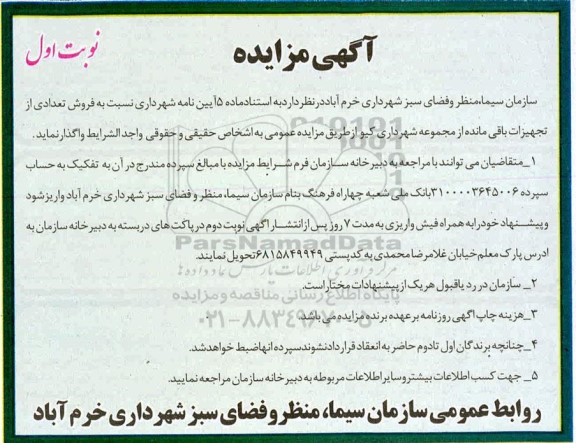 نوبت اول
آگهی مزایده
سازمان سیما،منظر وفضای سبز شهرداری خرم آباددرنظرداردبه استنادماده ۵آیین نامه شهرداری نسبت به فروش تعدادی از
تجهیزات باقی مانده از مجموعه شهرداری گیو ازطریق مزایده عمومی به اشخاص حقیقی و حقوقی واجدالشرایط واگذارنماید.
۱_متقاضیان می توانند با مراجعه به دبیرخانه سازمان فرم شرایط مزایده با مبالغ سپرده مندرج در آن به تفکیک به حساب
سپرده ۳۱۰۰۰۰۳۶۴۵۰۰۶بانک ملی شعبه چهاراه فرهنگ بنام سازمان سیما، منظر و فضای سبز شهرداری خرم آباد واریزشود
وپیشنهاد خودرابه همراه فیش واریزی به مدت ۷ روز پس ازانتشار آگهی نوبت دوم درپاکت های دربسته به دبیرخانه سازمان به
ادرس پارک معلم خیابان غلامرضا محمدی به کدپستی ۶۸۱۵۸۴۹۹۴۹تحویل نمایند.
۲_ سازمان در رد یاقبول هریک ازپیشنهادات مختاراست.
۳_هزینه چاپ اگهی روزنامه برعهده برنده مزایده می باشد.
۴_چنانچه برندگان اول تادوم حاضر به انعقاد قرار دادنشوندسپرده انهاضبط خواهدشد.
۵_ جهت کسب اطلاعات بیشتروسایراطلاعات مربوطه به دبیرخانه سازمان مراجعه نمایید.
روابط عمومی سازمان سیما، منظر وفضای سبز شهرداری خرم آباد
ParsNamadData
مرکز فرآوری اطلاعات پارس نماد داده ها
پایگاه اطلاع رسانی مناقصه و مزایده